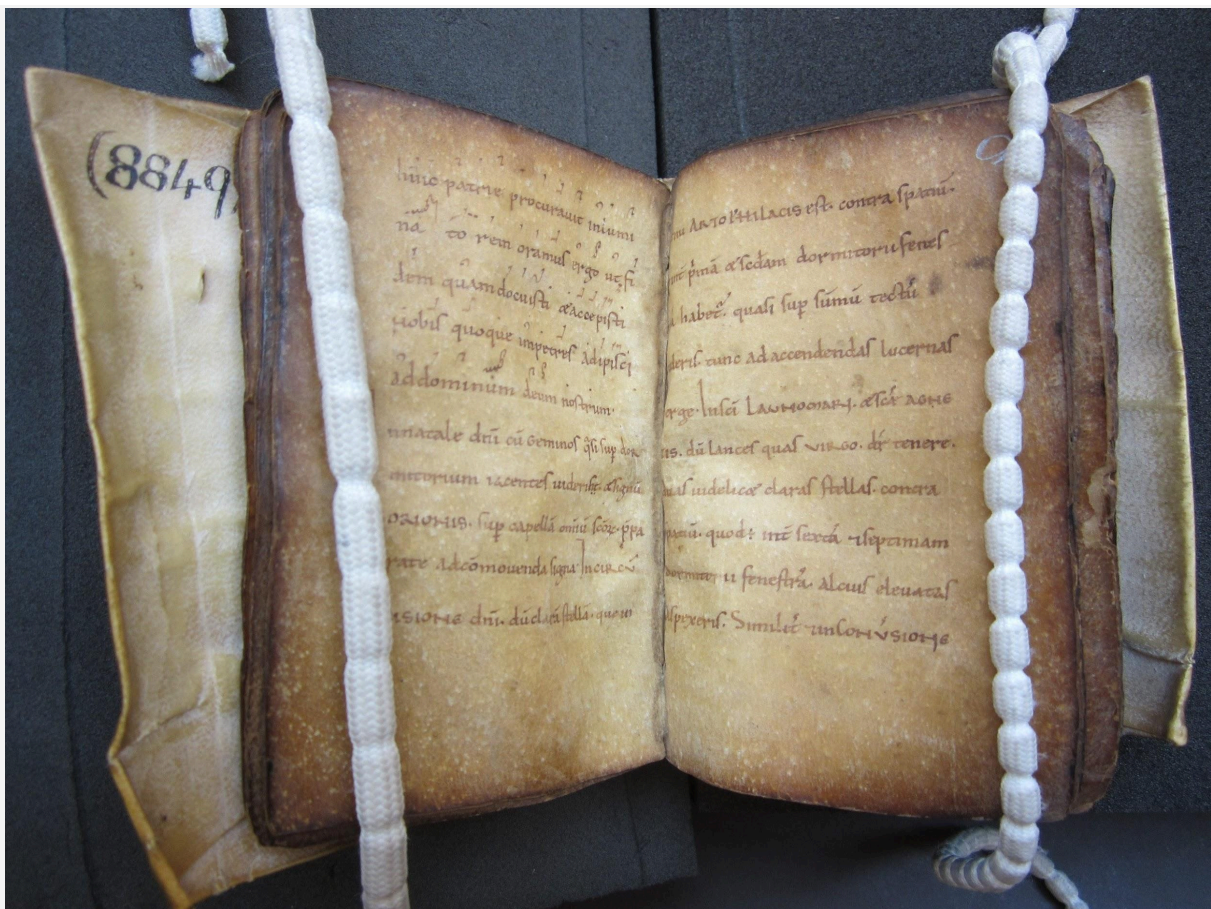 (8849
patrie procurauit
na to rem oramus ergo ut fi
dem quam docuisti & accepisti
uobis quoque impetres adipisci
ad dominum deum nostrum
In natale dñi cū Geminos q̄si sup dor
mitorium iacentes uideris & signū
ORIONIS. sup capellā omiū scōrꝫ p̄pa
rate . ad cōmouenda signa In CIRCŪ
CISIONE dñi. dū clara stella. que in
ARTOPHILACIS est. contra spatiū.
int p̄mā & scdam dormitorii fenes
habet̄. quasi sup sūmū tectū
uideris. tunc ad accendendas lucernas
surge. In sc̄i LAUNOMARI. & sc̄e AGNE
TIS. dū lances quas VIRGO. dr̄ tenere.
duas uidelic& claras stellas. contra
spatiū. quod ē int̄ sextā & septimam
dormitorii fenestrā. alcius eleuatas
aspexeris. Similit̄ in CONVSIONE